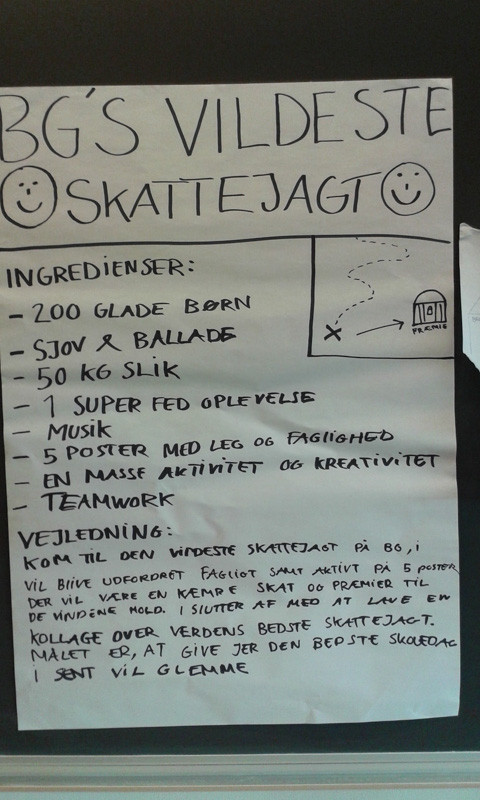 BG'S VILDESTE
SKATTEJAGT
INGREDIENSER:
- 200 GLADE BØRN
- SJOV & BALLADE
- 50 KG SLIK
- 1 SUPER FED OPLEVELSE
- MUSIK
- 5 POSTER MED LEG OG FAGLIGHED
- EN MASSE AKTIVITET OG KREATIVITET
- TEAMWORK
X
PRÆMIE
VEJLEDNING:
KOM TIL DEN VILDESTE SKATTEJAGT PÅ BG, I
VIL BLIVE UDFORDRET FAGLIGT SAMT AKTIVT PÅ 5 POSTER
DER VIL VÆRE EN KÆMPE SKAT OG PRÆMIER TIL
DE VINDENE HOLD. I SLUTTER AF MED AT LAVE EN
KOLLAGE OVER VERDENS BEDSTE SKATTEJAGT.
MÅLET ER, AT GIVE JER DEN BEDSTE SKOLEDAG
I SENT VIL GLEMME